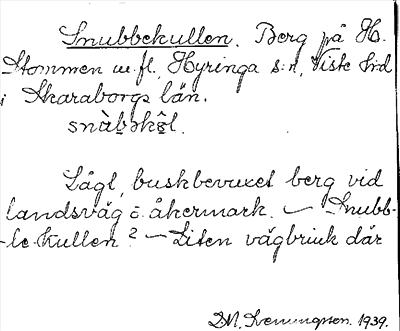 Snubbekullen. Berg på H.
Stommen m.fl., Hyringa s:n, Viste h:d
i Skaraborgs län.
snàbəkᶞl.
Lågt, buskbevuxet berg vid
landsväg o. åkermark. — Snubb-
-le-kullen? — Liten vägbrink där
1939.